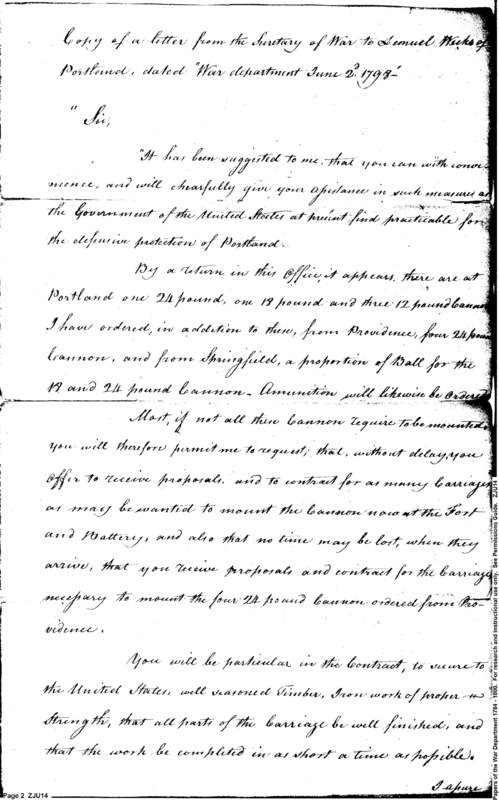 Copy of a letter from the Secretary of War to Lemuel Weeks of
Portland, dated "War department June 2d. 1798"
"Sir,
"It has been suggested to me, that you can with conve-
nience, and will chearfully give your assistance in such measures as
the Government of the United States at present find practicable for
the defensive protection of Portland.
By a return in this Office, it appears, there are at
Portland one 24 pound, one 18 pound and three 12 pound Cannon
I have ordered, in addition to these, from Providence, four 24 pound
Cannon, and from Springfield, a proportion of Ball for the
18 and 24 pound Cannon. Amunition will likewise be Ordered
Most, if not all these Cannon require to be mounted
you will therefore permit me to request, that, without delay, you
Offer to receive proposals, and to contract for as many Carriages
as may be wanted to mount the Cannon now at the Fort
and Battery, and also that no time may be lost, when they
arrive, that you receive proposals and contract for the Carriages
necessary to mount the four 24 pound Cannon ordered from Pro-
vidence.
You will be particular in the Contract, to secure to
the United States, well seasoned Timber, Iron work of proper
Strength, that all parts of the Carriage be well finished, and
that the work be completed in as short a time as possible.
I assure
Page 2 ZJU14
Papers of the War Department 1784-1800. For research and instructional use only. See Permissions Guide. ZJU14